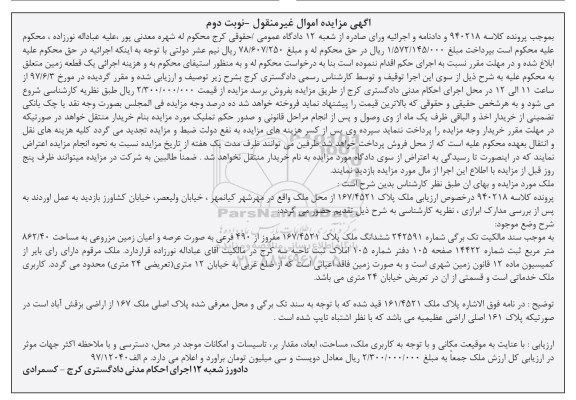 آگهی مزایده اموال غیرمنقول -نوبت دوم
بموجب پرونده کلاسه ۹۴۰۲۱۸ و دادنامه و اجرائیه ورای صادره از شعبه ۱۲ دادگاه عمومی /حقوقی کرج محکوم له شهره معدنی پور ،علیه عبداله نورزاده ، محکوم
علیه محکوم است بپرداخت مبلغ ۱/۵۷۲/۱۴۵/۰۰۰ ریال در حق محکوم له و مبلغ ۷۸/۶۰۷/۲۵۰ ریال نیم عشر دولتی با توجه به اینکه اجرائیه در حق محکوم علیه
ابلاغ شده و در مهلت مقرر نسبت به اجرای حکم اقدام ننموده است بنا به درخواست محکوم له و به منظور استیفای محکوم به و هزینه اجرائی یک قطعه زمین متعلق
به محکوم علیه به شرح ذیل از سوی این اجرا توقیف و توسط کارشناس رسمی دادگستری کرج بشرح زیر توصیف و ارزیابی شده و مقرر گردیده در مورخ ۹۷/۶/۳ از
ساعت ۱۱ الی ۱۲ در محل اجرای احکام مدنی دادگستری کرج از طریق مزایده بفروش برسد مزایده از قیمت ۲/۳۰۰/۰۰۰/۰۰۰ ریال طبق نظریه کارشناسی شروع
می شود و به هرشخص حقیقی و حقوقی که بالاترین قیمت را پیشنهاد نماید فروخته خواهد شد ده درصد وجه مزایده فی المجلس بصورت وجه نقد یا چک بانکی
تضمینی از خریدار اخذ و الباقی ظرف یک ماه از وی وصول و پس از انجام مراحل قانونی و صدور حکم تملیک مورد مزایده بنام خریدار منتقل خواهد در صورتیکه
در مهلت مقرر خریدار وجه مزایده را پرداخت ننماید سپرده وی پس از کسر هزینه های مزایده به نفع دولت ضبط و مزایده تجدید می گردد کلیه هزینه های نقل
و انتقال بعهده محکوم علیه است که از محل فروش پرداخت خواهد شد طرفین می توانند ظرف مدت یک هفته از تاریخ مزایده نسبت به نحوه انجام مزایده اعتراض
نمایند که در اینصورت تا رسیدگی به اعتراض از سوی دادگاه مورد مزایده به نام خریدار منتقل نخواهد شد . ضمناً طالبین به شرکت در مزایده میتوانند ظرف پنج
روز قبل از مزایده با اطلاع این اجرا از مال مورد مزایده بازدید نمایند.
ملک مورد مزایده و بهای ان طبق نظر کارشناس بدین شرح است :
پرونده کلاسه ۹۴۰۲۱۸ درخصوص ارزیابی ملک پلاک ۱۶۷/۴۵۲۱ از محل ملک واقع در مهرشهر کیانمهر ، خیابان ولیعصر، خیابان کشاورز بازدید به عمل اوردند به
پس از بررسی مدارک ابرازی ، نظریه کارشناسی به شرح ذیل تقدیم حضور می گردد.
شرح وضع موجود:
به موجب سند مالکیت تک برگی شماره ۲۴۲۵۹۱ ششدانگ ملک پلاک ۱۶۷/۴۵۲۱ مفروز از ۴۹۰ فرعی به صورت عرصه و اعیان زمین مزروعی به مساحت ۸۶۲/۴۰
متر مربع ثبت شماره ۱۴۴۲۲ صفحه ۱۰۵ دفتر شماره ۷۰۵ املاک ثبت ناحیه سه کرج در مالکیت آقای عبداله نورزاده قراردارد. ملک مرقوم دارای رای بایر از
کمیسیون ماده ۱۲ قانون زمین شهری است و به صورت زمین فاقد اعیانی است که از ضلع غربی به خیابان ۱۲ متری(تعریضی ۲۴ متری) محدود می گردد. کاربری
ملک خدماتی است و قسمتی از ان در تعریض خیابان ۲۴ متری می باشد.
توضیح : در نامه فوق الاشاره پلاک ملک ۱۶۱/۴۵۲۱ قید شده که با توجه به سند تک برگی و محل معرفی شده پلاک اصلی ملک ۱۶۷ از اراضی بزقش آباد است در
صورتیکه پلاک ۱۶۱ اصلی اراضی عظیمیه می باشد که با نظر اشتباه تایپ شده است .
ارزیابی : با عنایت به موقیعت مکانی و با توجه به کاربری ملک، مساحت، ابعاد، مقدار بر، تاسیسات و امکانات موجد در محل، دسترسی و با ملاحظه اکثر جهات موثر
در ارزیابی کل ارزش ملک جمعاً به مبلغ ۲/۳۰۰/۰۰۰/۰۰۰ ریال معادل دویست و سی میلیون تومان براورد و اعلام می دارد. م الف۹۷/۱۲۰۴۰
دادورز شعبه ۱۲ اجرای احکام مدنی دادگستری کرج – کسمرادی